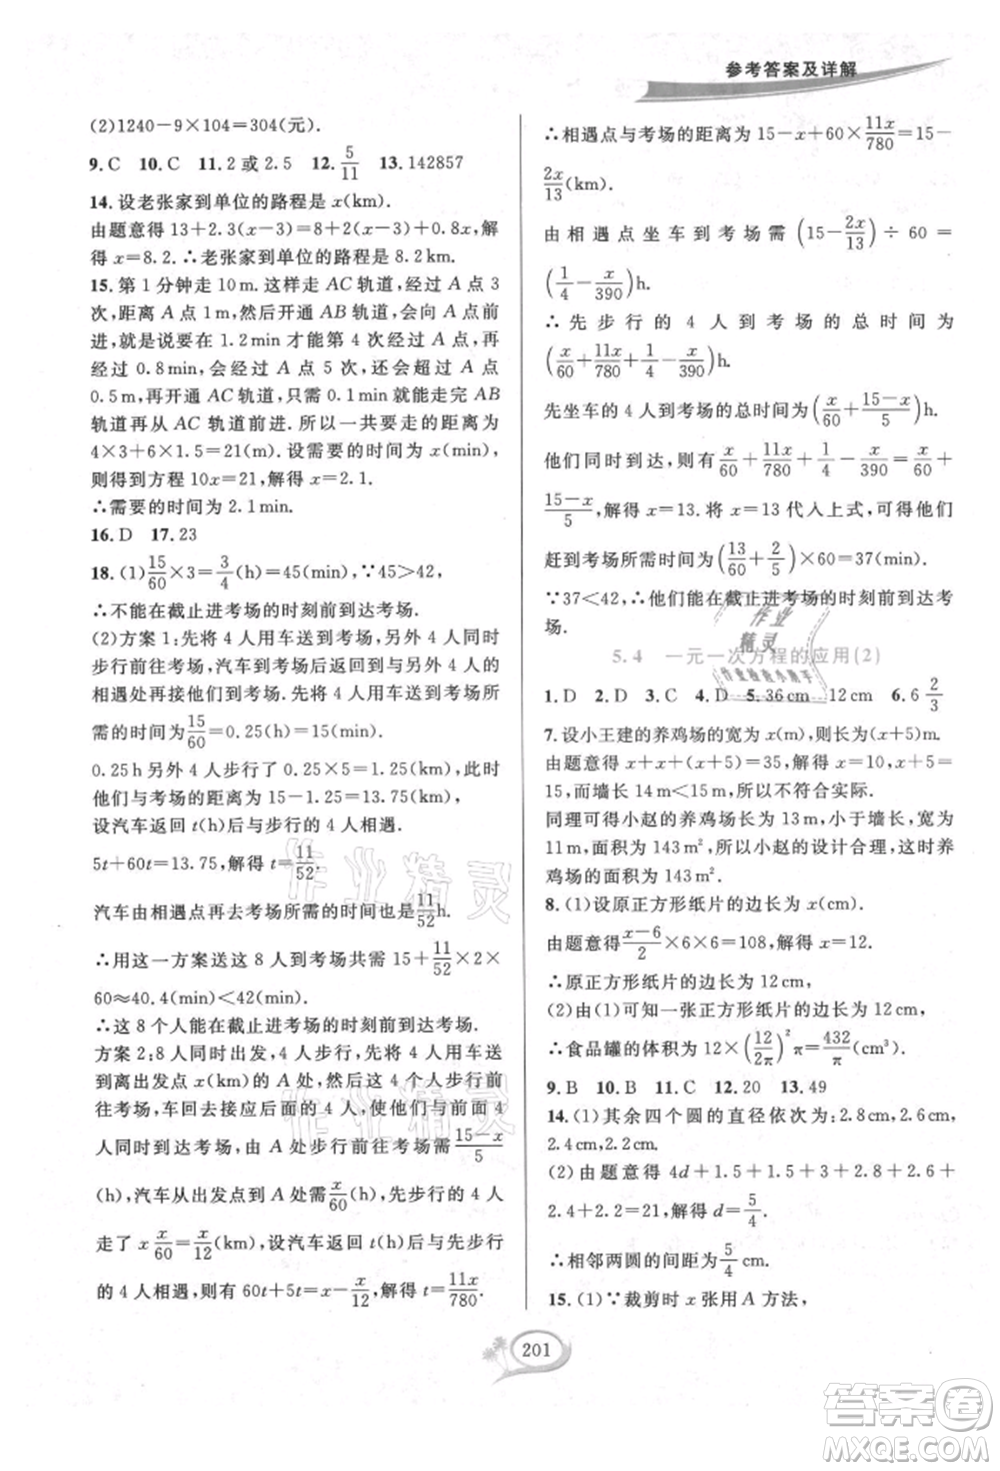 参考答案及详解
(2)1240－9×104＝304(元).
9.C 10.C 11.2 或 2.5 12.5/11 13.142857
14.设老张家到单位的路程是 x(km).
由题意得 13＋2.3(x－3)＝8＋2(x－3)＋3，解
得 x＝8.2.∴老张家到单位的路程是 8.2 km.
15.第 1 分钟走 10 m.这样走 AC 轨道,经过 A 点 3
次,距离 A 点 1 m,然后开通 AB 轨道,会向 A 点前
进,就是说要在 1.2 min 才能第 4 次经过 A 点,再
经过 0.8 min,会走 5 次,还会超过 A 点
0.5 m,再开通 AC 轨道,只需 0.1 min 就能走完 AB
轨道再从 AC 轨道前进.所以一共要走的距离为
4×3＋6×1.5＝21(m).设需要的时间为 x(min),
则得到方程 10x＝21,解得 x＝2.1.
∴需要的时间为 2.1 min.
16.D 17.23
18.(1)15/60×3＝3/4(h)＝45(min),∵45＞42,
∴不能在截止进考场的时刻前到达考场.
(2)方案 1:先将 4 人用车送到考场,另外 4 人同时
步行前往考场,汽车到考场后返回到与另外 4 人的
相遇处再接他们到考场.先将 4 人用车送到考场所
需的时间为15/60＝0.25(h)＝15(min).
0.25 h 另外 4 人步行了 0.25×5＝1.25(km),此时
他们与考场的距离为 15－1.25＝13.75(km).
设汽车返回 t(h)后与步行的 4 人相遇.
5t＋60t＝13.75,解得 t＝11/52.
汽车由相遇点再去考场所需的时间也是11/52 h.
∴用这一方案送这 8 人到考场共需 15＋11/52×2×
60≈40.4(min)＜42(min).
∴这 8 个人能在截止进考场的时刻前到达考场.
方案 2:8 人同时出发,4 人步行,先将 4 人用车送到
离出发点 x(km)的 A 处,然后这 4 个人步行前往
考场,车回去接应后面的 4 人,使他们与前面 4
人同时到达考场.由 A 处步行前往考场需15－x/5
(h),汽车从出发点到 A 处需x/60(h),步行的 4 人
走了 x x/60＝x/12(km).设汽车返回 t(h)后与步行
的 4 人相遇,则有 60t＋5t＝x－x/12,解得 t＝11x/780.
∴相遇点与考场的距离为 15－x＋60×11x/780＝15－
2x/13(km).
由相遇点坐车到考场需(15－2x/13)÷60＝
(1/4－x/390)h.
∴先步行的 4 人到考场的总时间为
(x/60＋11x/780＋1/4－x/390)h,
先坐车的 4 人到考场的总时间为(x/60＋15－x/5)h.
他们同时到达,则有x/60＋11x/780＋1/4－x/390＝x/60＋
15－x/5,解得 x＝13.将 x＝13 代入上式,可得他们
赶到考场所需时间为(13/60＋2/5)×60＝37(min).
∵37＜42,∴他们能在截止进考场的时刻前到达考
场.
5.4 一元一次方程的应用(2)
1.D 2.D 3.C 4.D 5.36 cm 12 cm 6.6 2/3
7.设小王建的养鸡场的宽为 x(m),则长为(x＋5)m.
由题意得 x＋x＋(x＋5)＝35,解得 x＝10,x＋5＝
15.而墙长 14 m＜15 m,所以不符合实际.
同理可得小赵的养鸡场长为 13 m,小于墙长,宽为
11 m,面积为 143 m²,所以小赵的设计合理,这时养
鸡场的面积为 143 m².
8.(1)设原正方形纸片的边长为 x(cm),
由题意得x－6/2×6×6＝108,解得 x＝12.
∴原正方形纸片的边长为 12 cm.
(2)由(1)可知一张正方形纸片的边长为 12 cm,
∴食品罐的体积为 12×(12/2π)²π＝432/π(cm³).
9.B 10.B 11.C 12.20 13.49
14.(1)其余四个圆的直径依次为:2.8 cm,2.6 cm,
2.4 cm,2.2 cm.
(2)由题意得 4d＋1.5＋1.5＋3＋2.8＋2.6＋
2.4＋2.2＝21,解得 d＝5/4.
∴相邻两圆的间距为5/4 cm.
15.(1)∵裁剪时 x 张用 A 方法,
201
作业精灵
作业精灵
作业精灵
作业检查小助手
答案圈
MXQE.COM